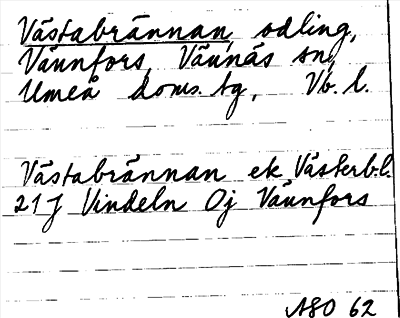 Västabrännan, odling,
Vännfors, Vännäs sn,
Umeå doms. tg, Vb. l.
Västabrännan ek Västerb.l.
21J Vindeln Oj Vännfors
ASO 62